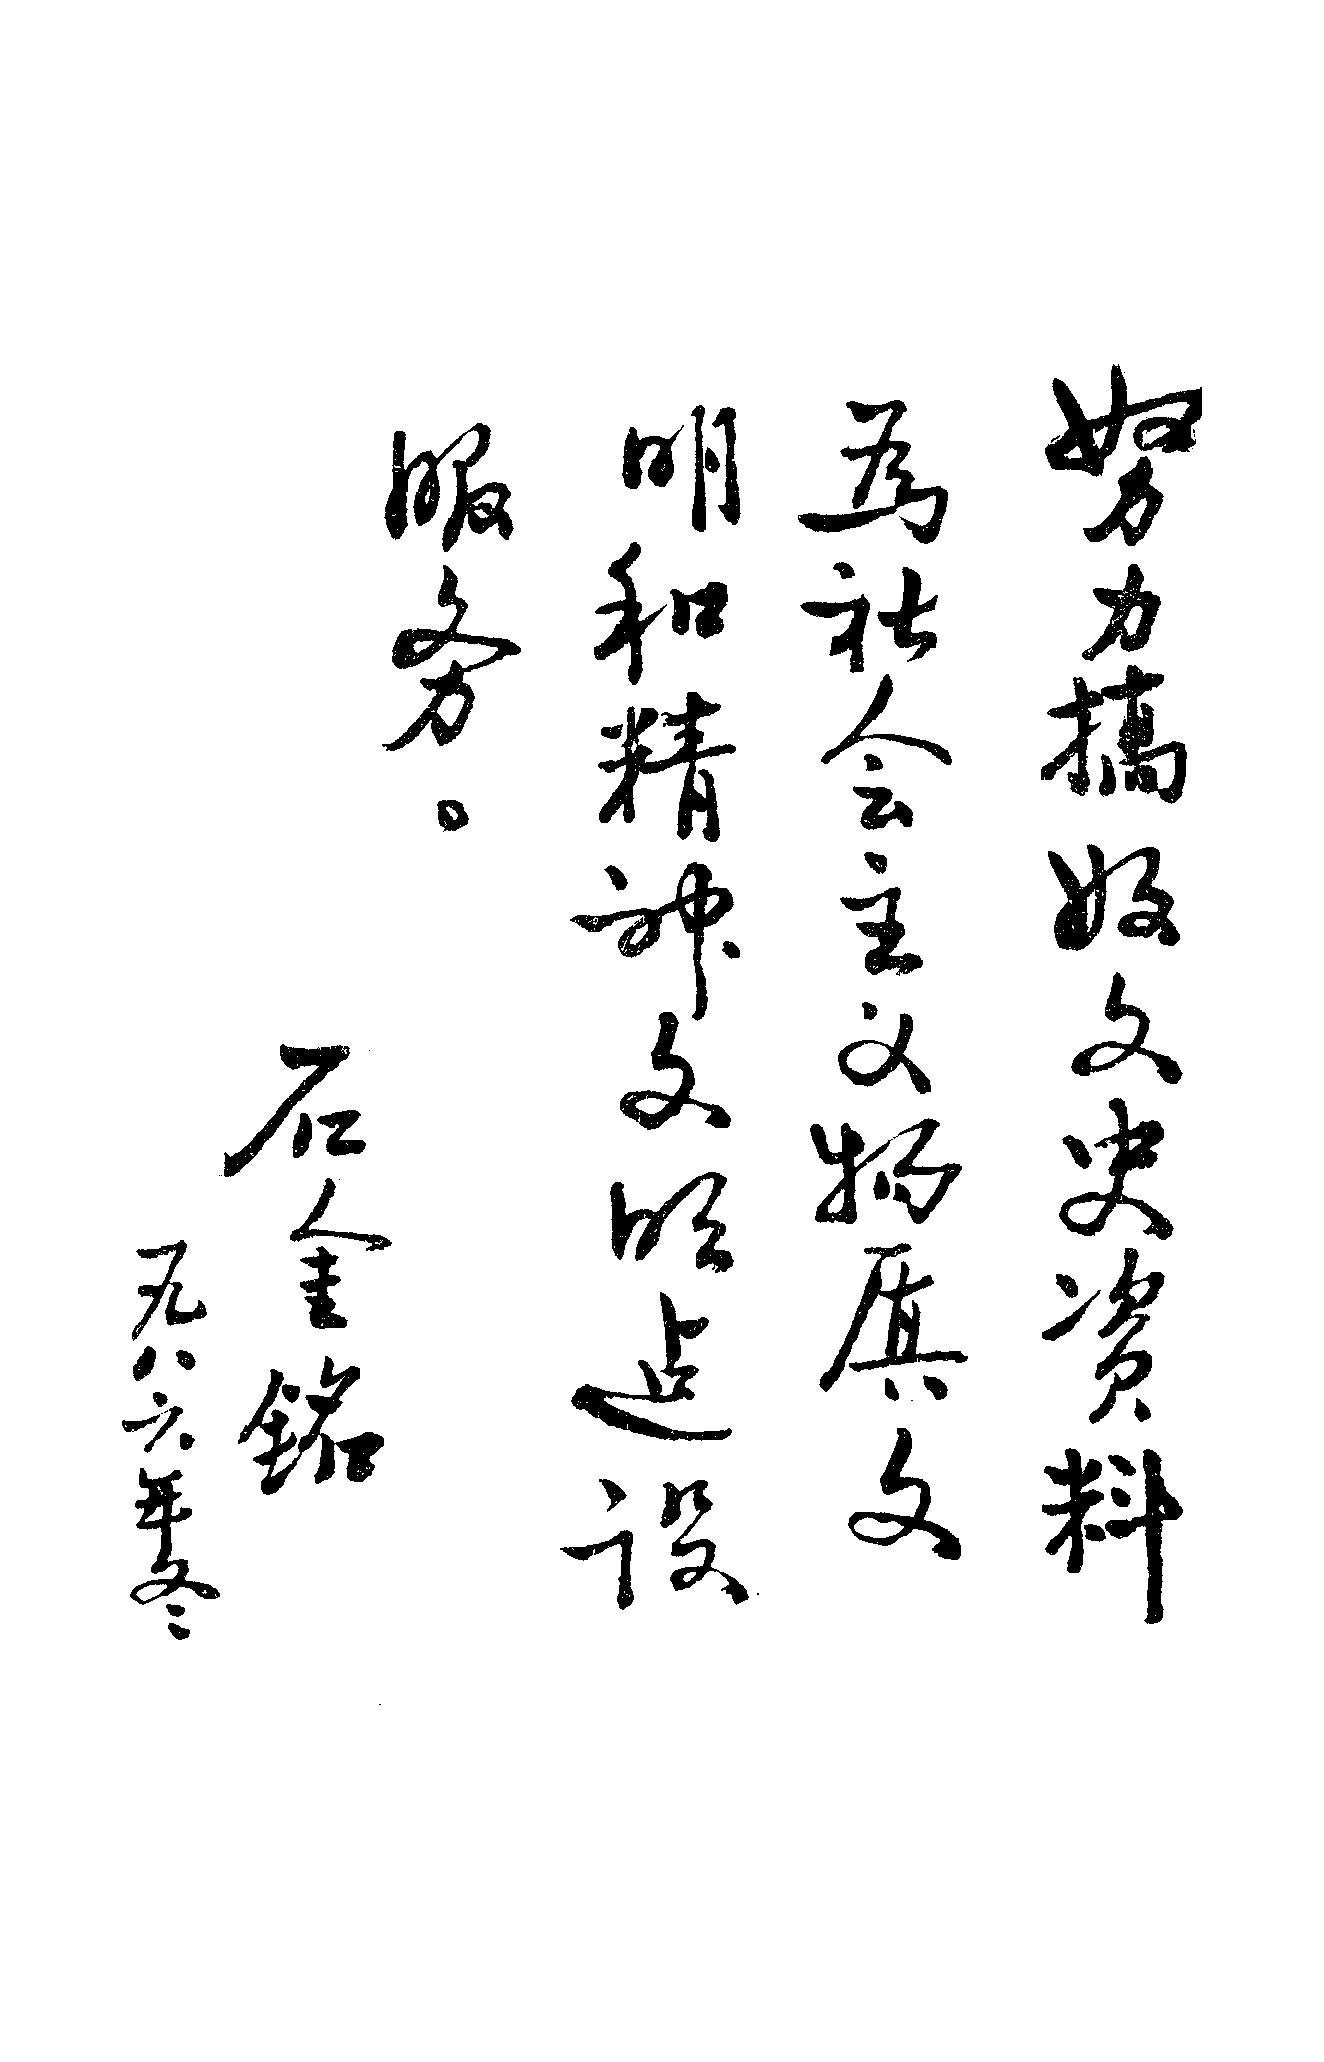 努力搞好文史资料
為社会主义物质文
明和精神文明建设
服务。
石金銘
一九八六年冬